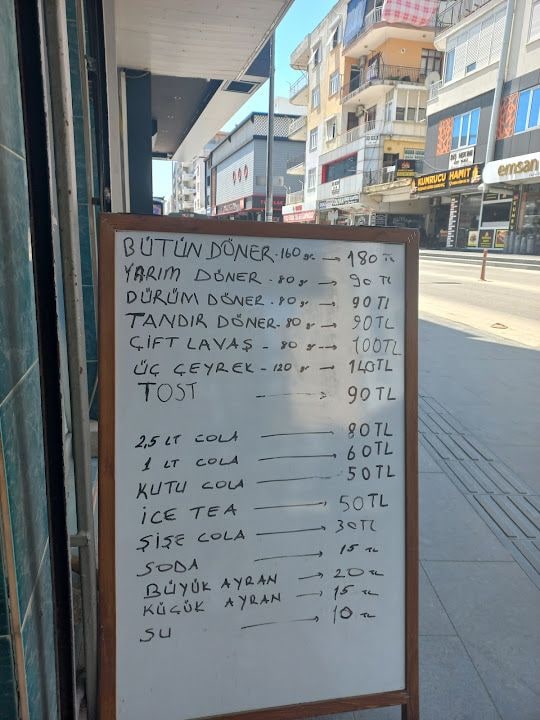 BÜTÜN DÖNER - 160 gr → 180 TL
YARIM DÖNER - 80 gr → 90 TL
DÜRÜM DÖNER - 80 gr → 90 TL
TANDIR DÖNER - 80 gr → 90 TL
ÇİFT LAVAŞ - 80 gr → 100 TL
ÜÇ ÇEYREK - 120 gr → 140 TL
TOST → 90 TL
2,5 LT COLA → 80 TL
1 LT COLA → 60 TL
KUTU COLA → 50 TL
İCE TEA → 50 TL
ŞİŞE COLA → 30 TL
SODA → 15 TL
BÜYÜK AYRAN → 20 TL
KÜÇÜK AYRAN → 15 TL
SU → 10 TL
KUMRUCU HAMİT
emsan